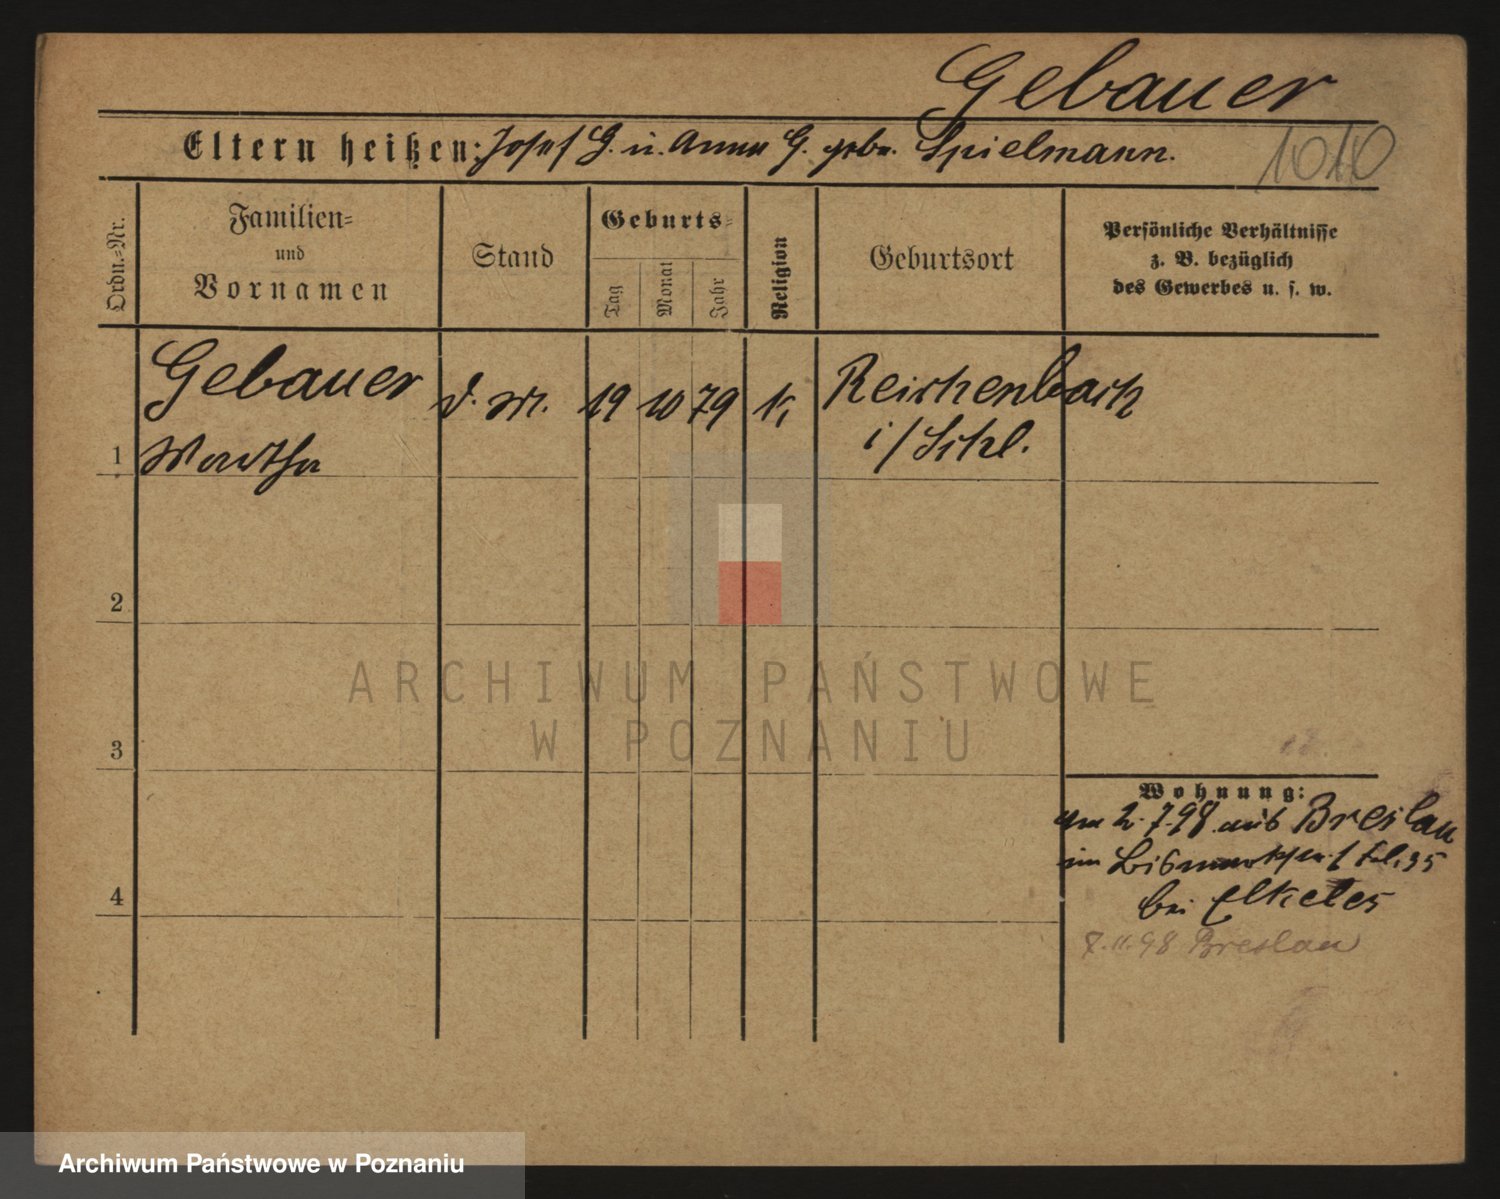 Gebauer
Eltern heißen: Josef G. u. Anna G. geb. Spielmann.
1010
Ordn.=Nr.
Familien=
und
Vornamen
Stand
Geburts=
Tag
Monat
Jahr
Religion
Geburtsort
Persönliche Verhältnisse
z. B. bezüglich
des Gewerbes u. s. w.
Gebauer d. M. 19 10 79 k. Reichenbach
i/Schl.
1 Martha
2
ARCHIWUM PAŃSTWOWE
W POZNANIU
3
Wohnung:
am 2.7.98 aus Breslau
im
bei
4
7.11.98 Breslau
Archiwum Państwowe w Poznaniu